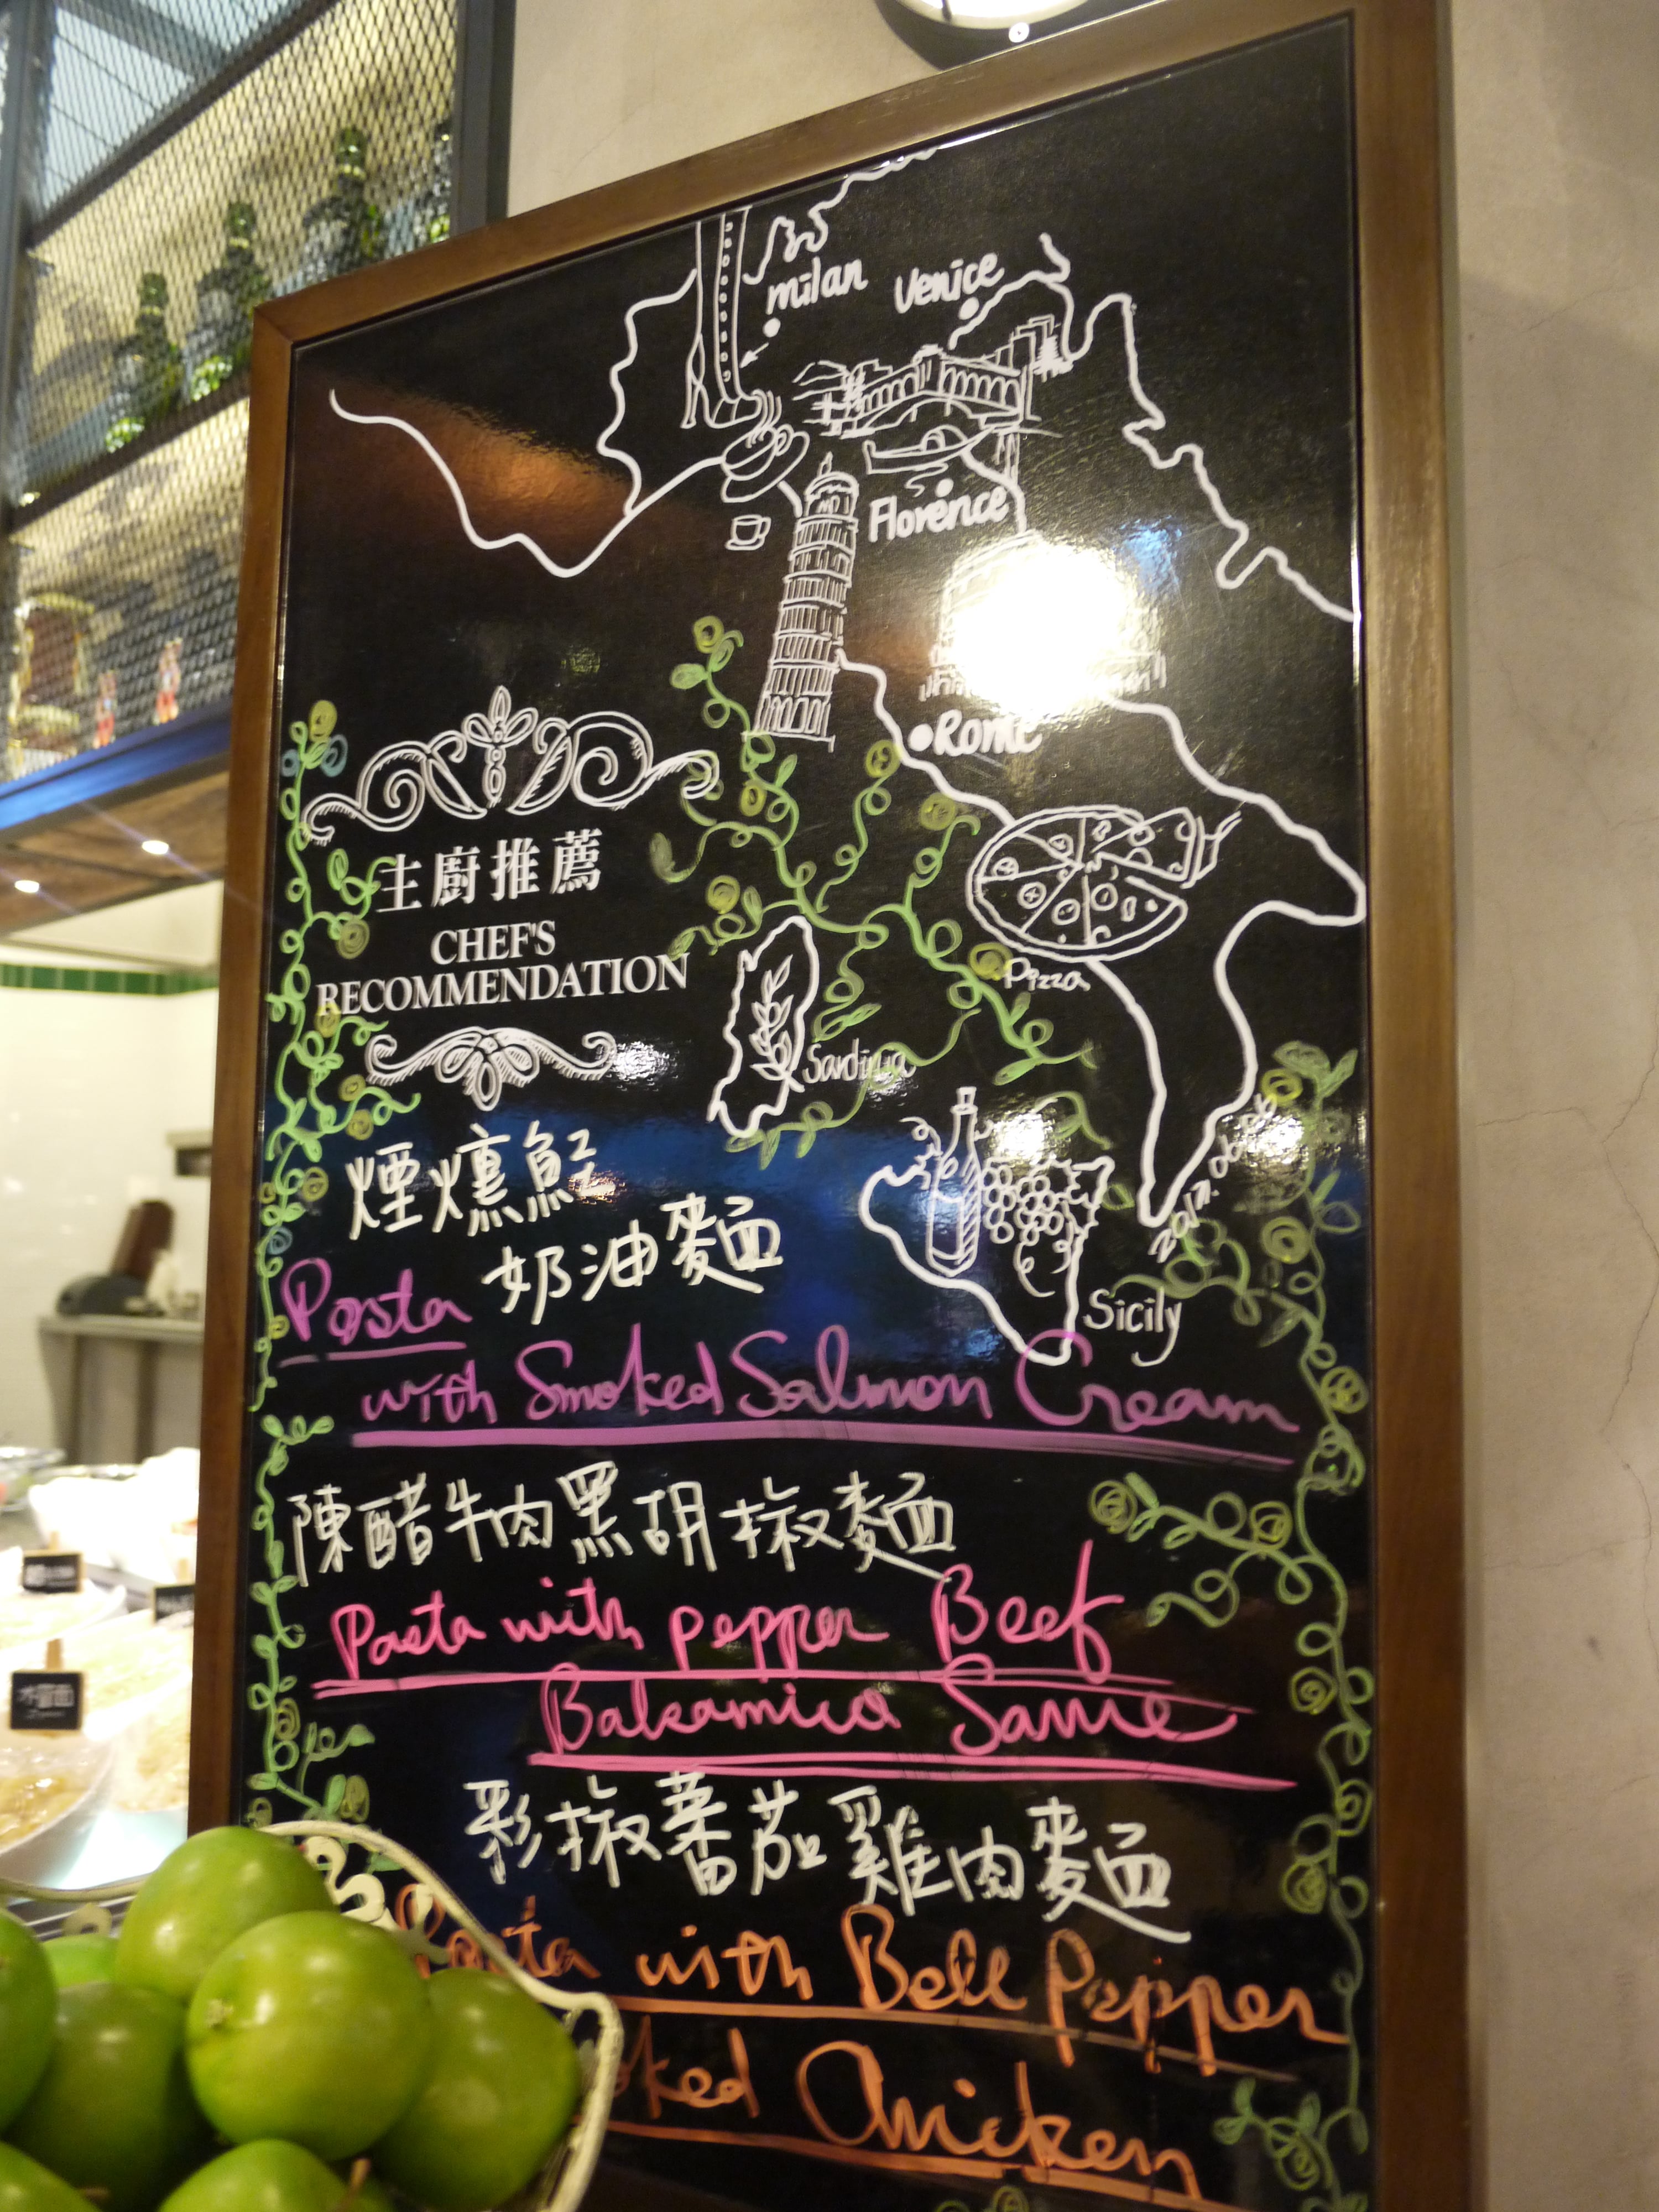 milan
venice
Florence
Rome
Pizza
Sardinia
Sicily
主廚推薦
CHEF'S
RECOMMENDATION
煙燻鮭
奶油麵
Pasta
with Smoked Salmon Cream
陳醋牛肉黑胡椒麵
Pasta with pepper Beef
Balsamico Sauce
彩椒蕃茄雞肉麵
Pasta with Bell Pepper
oked Chicken